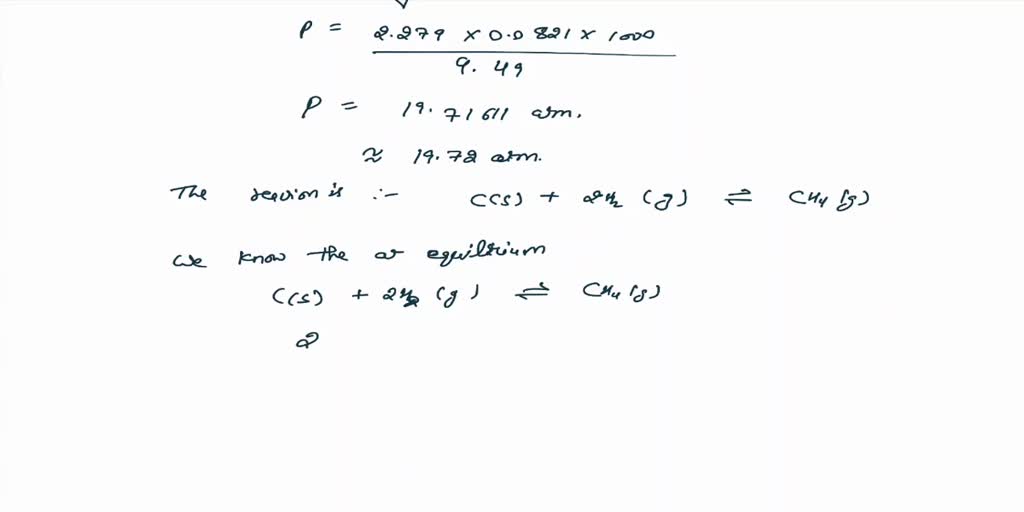 P = 2.279 × 0.0821 × 1000
9.49
P = 19.71611 atm.
≈ 19.72 atm.
The reaction is :- C(s) + 2H2 (g) ⇌ CH4 (g)
We know the at equilirium
C(s) + 2H2 (g) ⇌ CH4 (g)
2